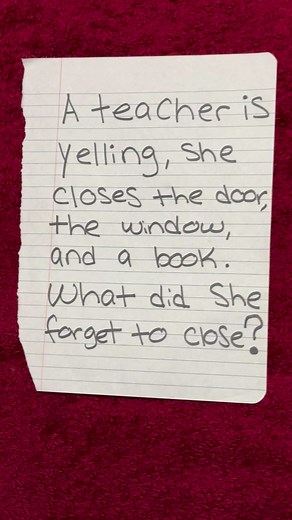 A teacher is
yelling, she
closes the door,
the window,
and a book.
What did She
forget to close?